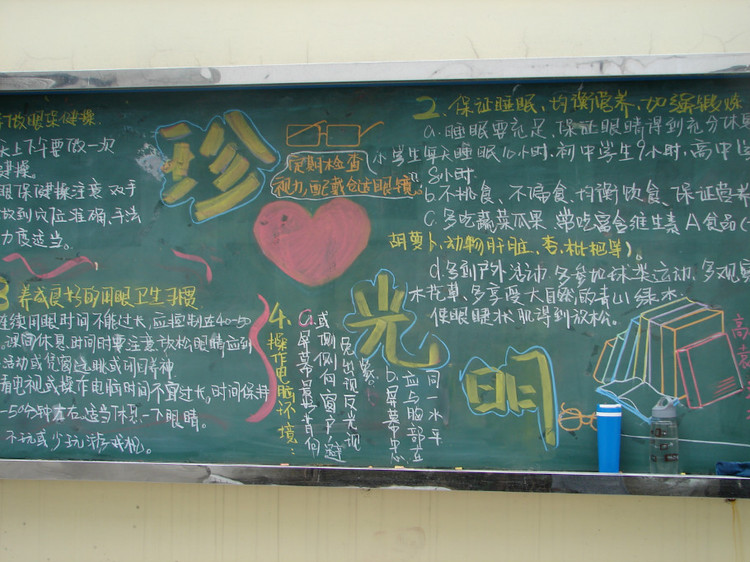 做眼保健操
上下午要做一次
健操。
眼保健操注意双手
放到穴位准确、手法
力度适当。
珍
爱
光
明
定期检查
视力,配戴合适眼镜。
2、保证睡眠、均衡营养、加强锻炼
a.睡眠要充足、保证眼睛得到充分休息
小学生每天睡眠10小时,初中学生9小时,高中学
8小时.
b.不挑食、不偏食、均衡饮食、保证营养
c.多吃蔬菜瓜果 常吃富含维生素A食品(
胡萝卜、动物肝脏、杏、枇杷等)。
d.多到户外活动、多参加球类运动、多观
木花草、多享受大自然的青山绿水、
使眼睫状肌得到放松。
3 养成良好的用眼卫生习惯
连续用眼时间不能过长,应控制在40-50
课间休息时间时要注意放松眼睛应到
活动或凭窗远眺或闭目养神
看电视或操作电脑时间不宜过长,时间保持
-50分钟左右适当休息一下眼睛。
不玩或少玩游戏机。
4.操作电脑环境:
a.屏幕最好背向
或侧向窗户避
免出现反光现
象.
b.屏幕中心
应与胸部在
同一水平
高